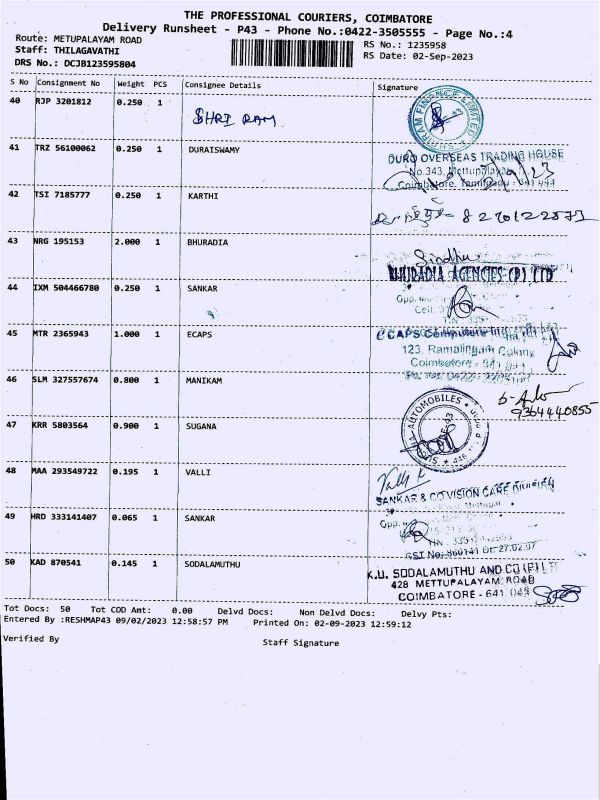 THE PROFESSIONAL COURIERS, COIMBATORE
Delivery Runsheet - P43 - Phone No.:0422-3505555 - Page No.:4
Route: METUPALAYAM ROAD
RS No.: 1235958
Staff: THILAGAVATHI
RS Date: 02-Sep-2023
DRS No.: DCJB123595804
S No Consignment No Weight PCS Consignee Details Signature
40 RJP 3201812 0.250 1 SHRI RAM
SHRIRAM FINANCE LIMITED
41 TRZ 56100062 0.250 1 DURAISWAMY
DURO OVERSEAS TRADING HOUSE
No.343, Mettupalayam
Coimbatore, Tamilnadu - 641
42 TSI 7185777 0.250 1 KARTHI
43 NRG 195153 2.000 1 BHURADIA
Sindhu
BHURADIA AGENCIES (P) LTD
44 IXM 504466780 0.250 1 SANKAR
Opp.
Cell:
45 MTR 2365943 1.000 1 ECAPS
ECAPS Computers
123, Ramalingam Colony
Coimbatore -
46 SLM 327557674 0.800 1 MANIKAM
9364440855
47 KRR 5803564 0.900 1 SUGANA
AUTOMOBILES
48 MAA 293549722 0.195 1 VALLI
Valli
SANKAR & CO VISION CARE
49 HRD 333141407 0.065 1 SANKAR
Opp.
GST No: 860141 Dt: 27.02.07
50 KAD 870541 0.145 1 SODALAMUTHU
K.U. SODALAMUTHU AND CO (P) LT
428 METTUPALAYAM ROAD
COIMBATORE - 641 043
Tot Docs: 50 Tot COD Amt: 0.00 Delvd Docs: Non Delvd Docs: Delvy Pts:
Entered By :RESHMAP43 09/02/2023 12:58:57 PM Printed On: 02-09-2023 12:59:12
Verified By
Staff Signature